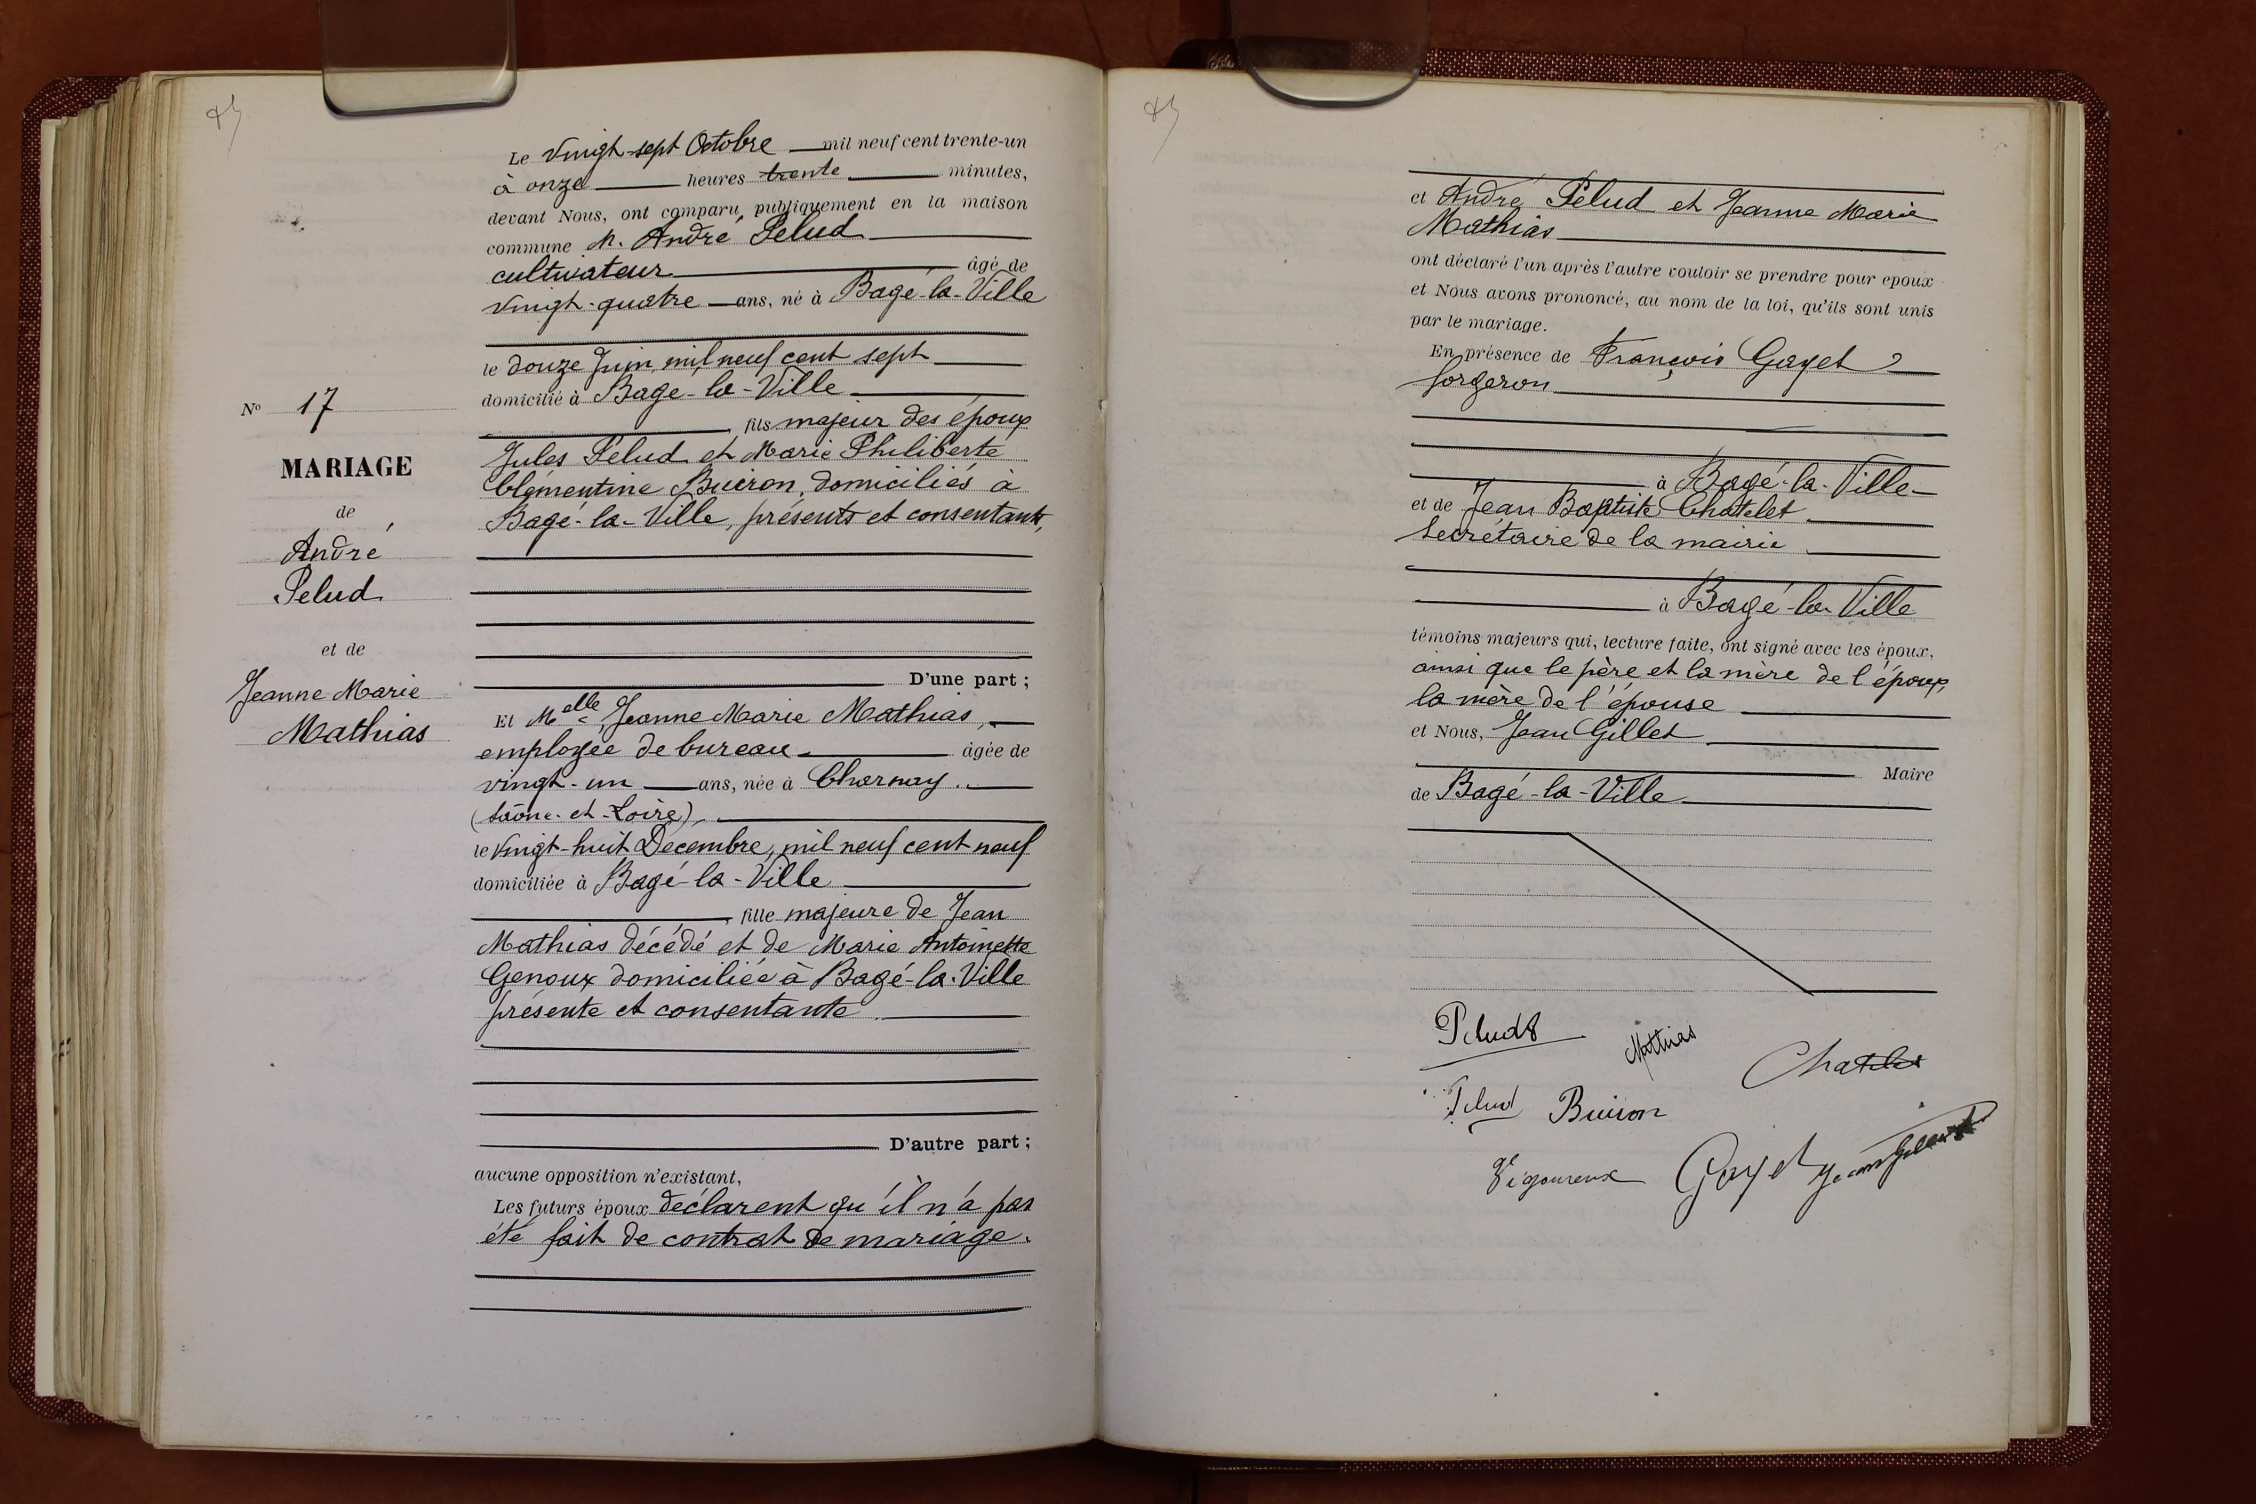 Le vingt-sept Octobre mil neuf cent trente-un
à onze heures trente minutes,
devant Nous, ont comparu publiquement en la maison
commune M. André Pelud
cultivateur âgé de
vingt-quatre ans, né à Bagé-la-Ville
le douze Juin mil neuf cent sept
domicilié à Bagé-la-Ville
fils majeur des époux
Jules Pelud et Marie Philiberte
Clémentine Buiron, domiciliés à
Bagé-la-Ville, présents et consentants,
D'une part ;
Et Melle Jeanne Marie Mathias,
employée de bureau âgée de
vingt-un ans, née à Charnay
(Saône-et-Loire),
le vingt-huit Décembre, mil neuf cent neuf
domiciliée à Bagé-la-Ville
fille majeure de Jean
Mathias décédé et de Marie Antoinette
Genoux domiciliée à Bagé-la-Ville
présente et consentante
D'autre part ;
aucune opposition n'existant,
Les futurs époux déclarent qu'il n'a pas
été fait de contrat de mariage.
No 17
MARIAGE
de
André
Pelud
et de
Jeanne Marie
Mathias
et André Pelud et Jeanne Marie
Mathias
ont déclaré l'un après l'autre vouloir se prendre pour époux
et Nous avons prononcé, au nom de la loi, qu'ils sont unis
par le mariage.
En présence de François Gayet
forgeron
à Bagé-la-Ville
et de Jean Baptiste Chatelet
Secrétaire de la mairie
à Bagé-la-Ville
témoins majeurs qui, lecture faite, ont signé avec les époux,
ainsi que le père et la mère de l'époux,
la mère de l'épouse
et Nous, Jean Gillet
Maire
de Bagé-la-Ville
Pelud
Mathias
Chatelet
Pelud Buiron
Vigoureux Gayet